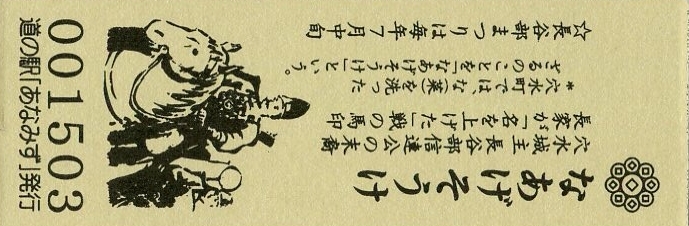 なあげそうけ
穴水城主長谷部信連公の末裔
長家が「名を上げた」戦の馬印
*穴水町では、な(菜)を洗った
ヤるのことを「なあげそうけ」という。
☆長谷部まつりは毎年7月中旬
001503
道の駅「あなみず」発行